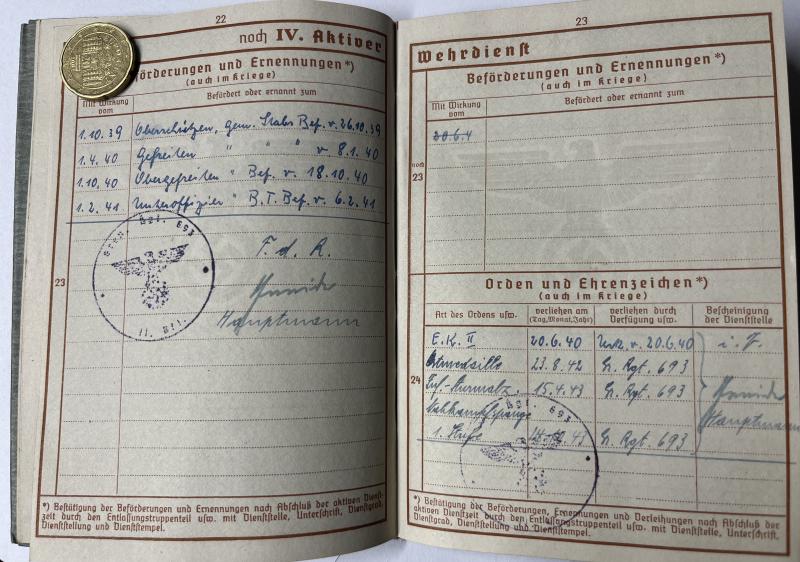 22
noch IV. Aktiver
Beförderungen und Ernennungen*)
(auch im Kriege)
Mit Wirkung vom
Befördert oder ernannt zum
1.10.39 Oberschützen, gem. Stabs Bef. v. 26.10.39
1.4.40 Gefreiten " " " v 8.1.40
1.10.40 Obergefreiten " Bef. v. 18.10.40
1.2.41 Unteroffizier " B.T. Bef. v. 6.2.41
F. d. R.
Hauptmann
23
Gren. Rgt. 693
*) Bestätigung der Beförderungen und Ernennungen nach Abschluß der aktiven Dienst-
zeit durch den Entlassungstruppenteil usw. mit Dienststelle, Unterschrift, Dienstgrad,
Dienststellung und Dienststempel.
23
Wehrdienst
Beförderungen und Ernennungen*)
(auch im Kriege)
Mit Wirkung vom
Befördert oder ernannt zum
20.6.4
noch
23
Orden und Ehrenzeichen*)
(auch im Kriege)
Art des Ordens usw.
verliehen am (Tag, Monat, Jahr)
verliehen durch Verfügung usw.
Bescheinigung der Dienststelle
E.K. II 20.6.40 Urk. v. 20.6.40
Ostmedaille 23.8.42 Gr. Rgt. 693
Inf.-Sturmabz. 15.4.43 Gr. Rgt. 693
Nahkampfspange
1. Stufe Gr. Rgt. 693
Hauptmann
24
Rgt. 693
*) Bestätigung der Beförderungen, Ernennungen und Verleihungen nach Abschluß der
aktiven Dienstzeit durch den Entlassungstruppenteil usw. mit Dienststelle, Unterschrift,
Dienstgrad, Dienststellung und Dienststempel.